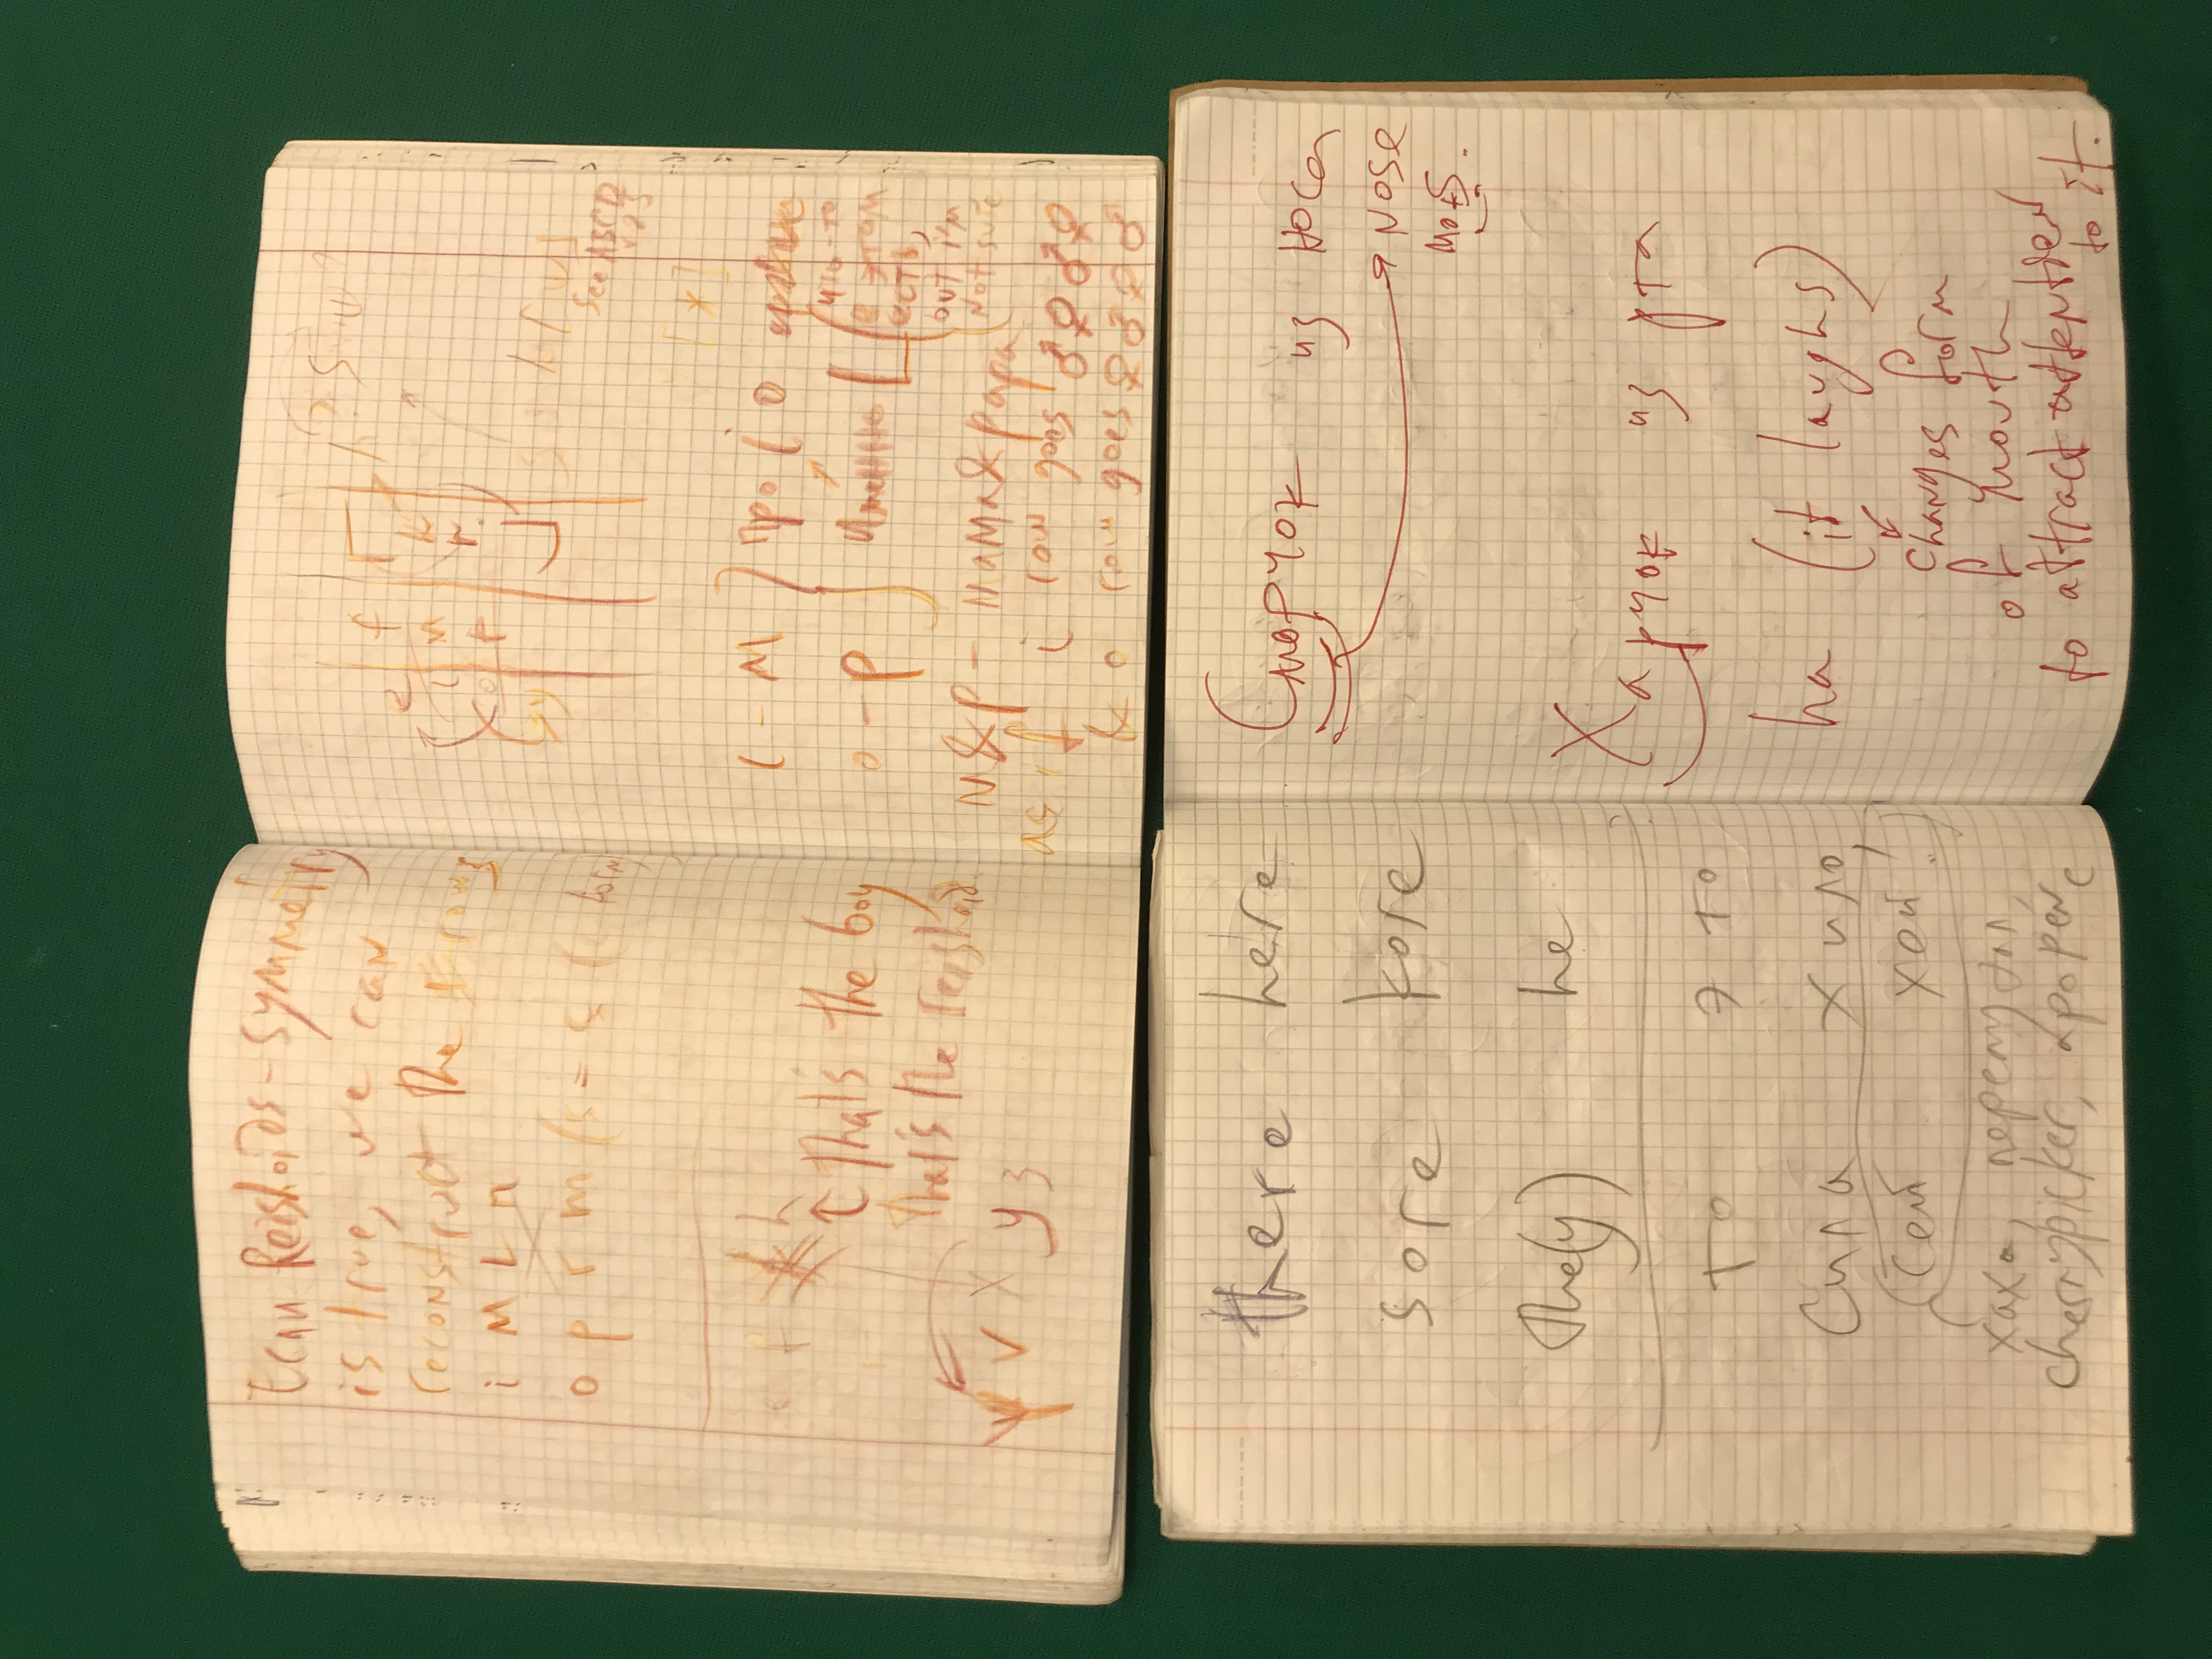 Если Reishoids-symmetry
is true, we can
reconstruct the rows
i M L n
o p r m (s = s
form
f h
That's the boy
that's the reishoid
Y V X y 3
e f Г
i м k
o p r.
3y
k [ψ]
see ABCD
v23
[*]
i - M } про i o
o - p
L
что-то
в этом
есть,
but i'm
not sure
M&P - мама&papa
as if i row goes ♂♀♂♀
& o row goes ♀♂♀♂
there here
sore kore
the(y) he
то это
Сила хило,
(сей хой!)
хаха, перепутал,
cherrypicker,
Сморчок из носа
nose
Харчок из рта
ha (it laughs)
changes form
of mouth
to attract attention
to it.